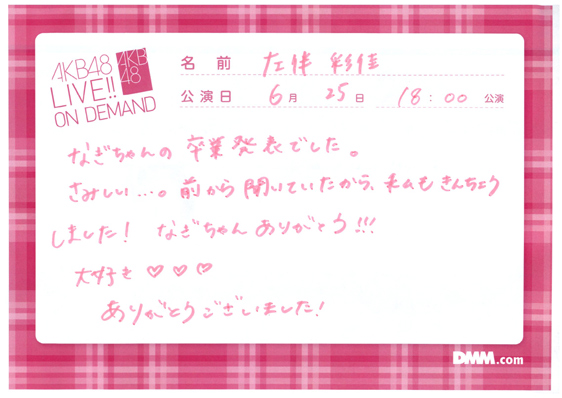 AKB48
LIVE!!
ON DEMAND
AKB
48
名前 左伴 彩佳
公演日 6月 25日 18:00 公演
なぎちゃんの 卒業発表でした。
さみしい…。前から聞いていたから、私もきんちょう
しました! なぎちゃんありがとう!!!
大好き♡♡♡
ありがとうございました!
DMM.com